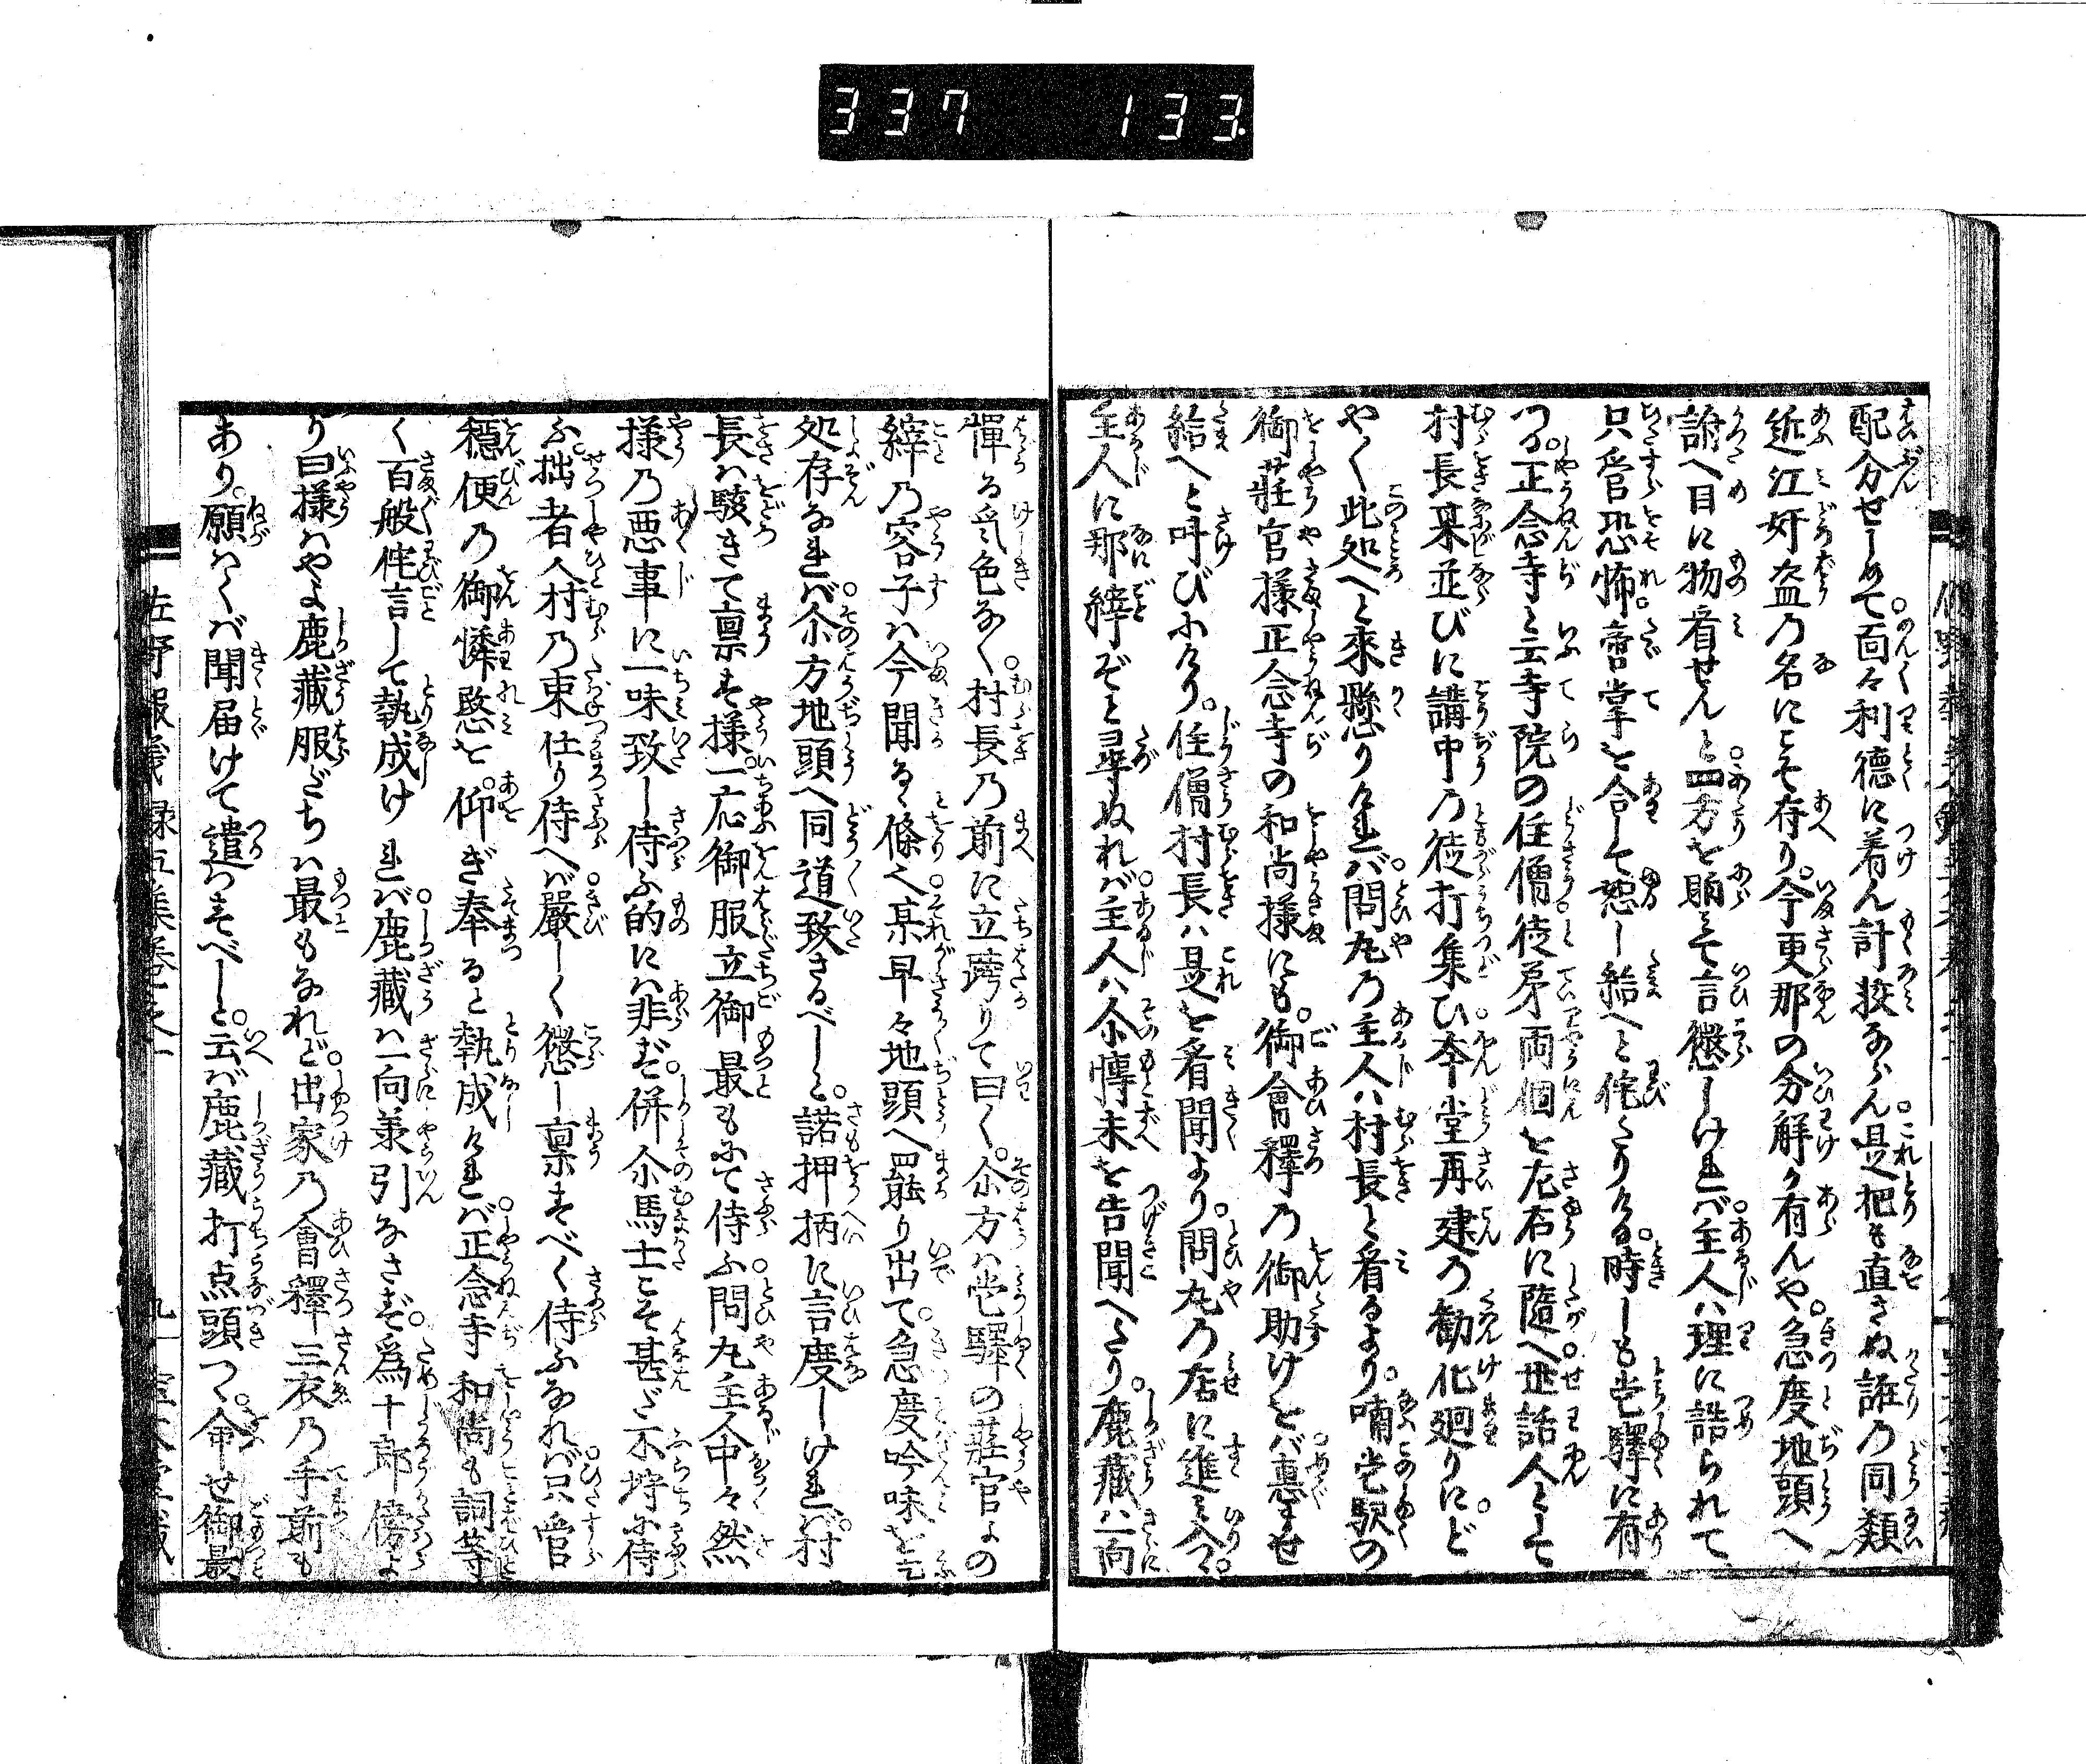 337 133
配分せしめて面々利徳に着ん計挍ならん是把も直さぬ誰の同類
近江奸盗の名にこそ存り今更那の分解か有んや急度地頭へ
訴へ目に物看せんと四方を睨て言懲しければ主人ハ理に詰られて
只管恐怖れ合掌を合して恕し給へと侘たりける時しも当驛に有
つる正念寺と云寺院の住僧徒弟両個を左右に隨へ世話人として
村長某並びに講中の徒打集ひ本堂再建の勸化廻りにど
やく此処へと來懸りければ問丸の主人ハ村長と看るより喃当駅の
御莊官様正念寺の和尚様にも御會釋の御助けをバ惠ませ
給へと叫びける住僧村長ハ是を看聞より問丸の店に進ミ入て
主人に那縡ぞと尋ぬれバ主人ハ尒慱末を告聞へたり鹿藏ハ一向
憚る気色なく村長の前に立跨りて曰く尒方ハ当驛の莊官よの
縡の容子ハ今聞る條之某早々地頭へ罷り出て急度吟味を乞
処存なれバ尒方地頭へ同道致さるべしと諾押柄に言度しければ村
長ハ駭きて禀す様一応御服立御最もにて侍ふ問丸主人中々然
様の悪事に一味致し侍ふ的にハ非ず併尒馬士こそ甚だ不埒に侍
ふ拙者人村の束仕り侍へバ嚴しく懲し禀すべく侍ふなれバ只管
穏便の御憐愍を仰ぎ奉ると執成ければ正念寺和尚も詞等し
く百般侘言して執成けれバ鹿藏ハ一向兼引なさず為十郎傍よ
り曰様ハやよ鹿藏服だちハ最もなれど出家の會釋三衣の手前も
あり願ハくバ聞届けて遣ハすべしと云バ鹿藏打点頭つゝ命せ御最
佐野報義録五集巻之一
九